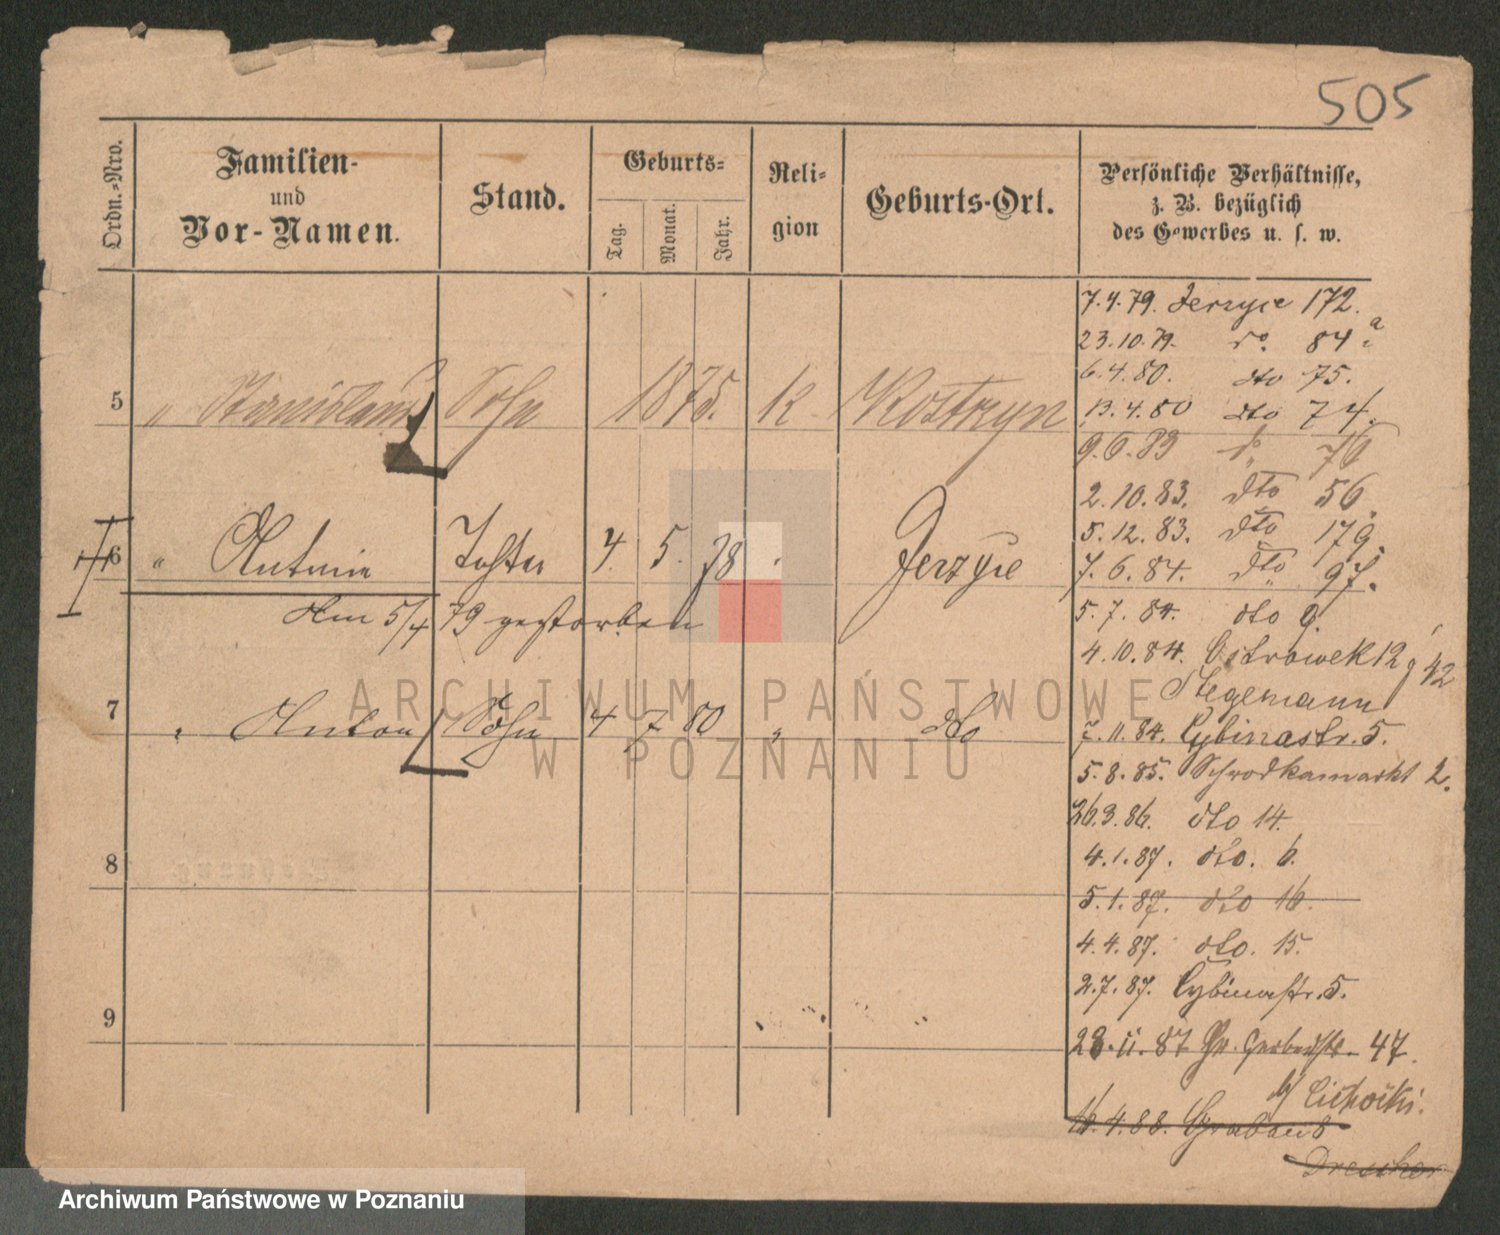 505
Ordn.-Nro.
Familien-
und
Vor-Namen.
Stand.
Geburts-
Tag.
Monat.
Jahr.
Reli-
gion
Geburts-Ort.
Persönliche Verhältnisse,
z. B. bezüglich
des Gewerbes u. s. w.
5 " Stanislaus Sohn 1875. k Kostrzyn
6 " Antonie Tochter 4. 5. 78 " Jerzyce
Am 5/4 79 gestorben
7 " Anton Sohn 4 7 80 " dto
8
9
7.4.79. Jerzyce 172.
23.10.79. do. 84 a
6.4.80. dto 75.
13.4.80 dto 74.
9.6.83 do 76
2.10.83. dto 56.
5.12.83. dto 179.
7.6.84. dto 97.
5.7.84. dto 9.
4.10.84. Ostrowek 12 42
Stegemann
7.11.84. Cybinastr. 5.
5.8.85. Schrodkamarkt 2.
26.3.86. dto 14.
4.1.87. dto. 6.
5.1.87. dto 16.
4.4.87. dto. 15.
2.7.87. Cybinastr. 5.
28.11.87 Gr. Gerberstr. 47.
b/ Cichocki.
16.4.88. Graben 8
Drescher
ARCHIWUM PAŃSTWOWE
W POZNANIU
Archiwum Państwowe w Poznaniu